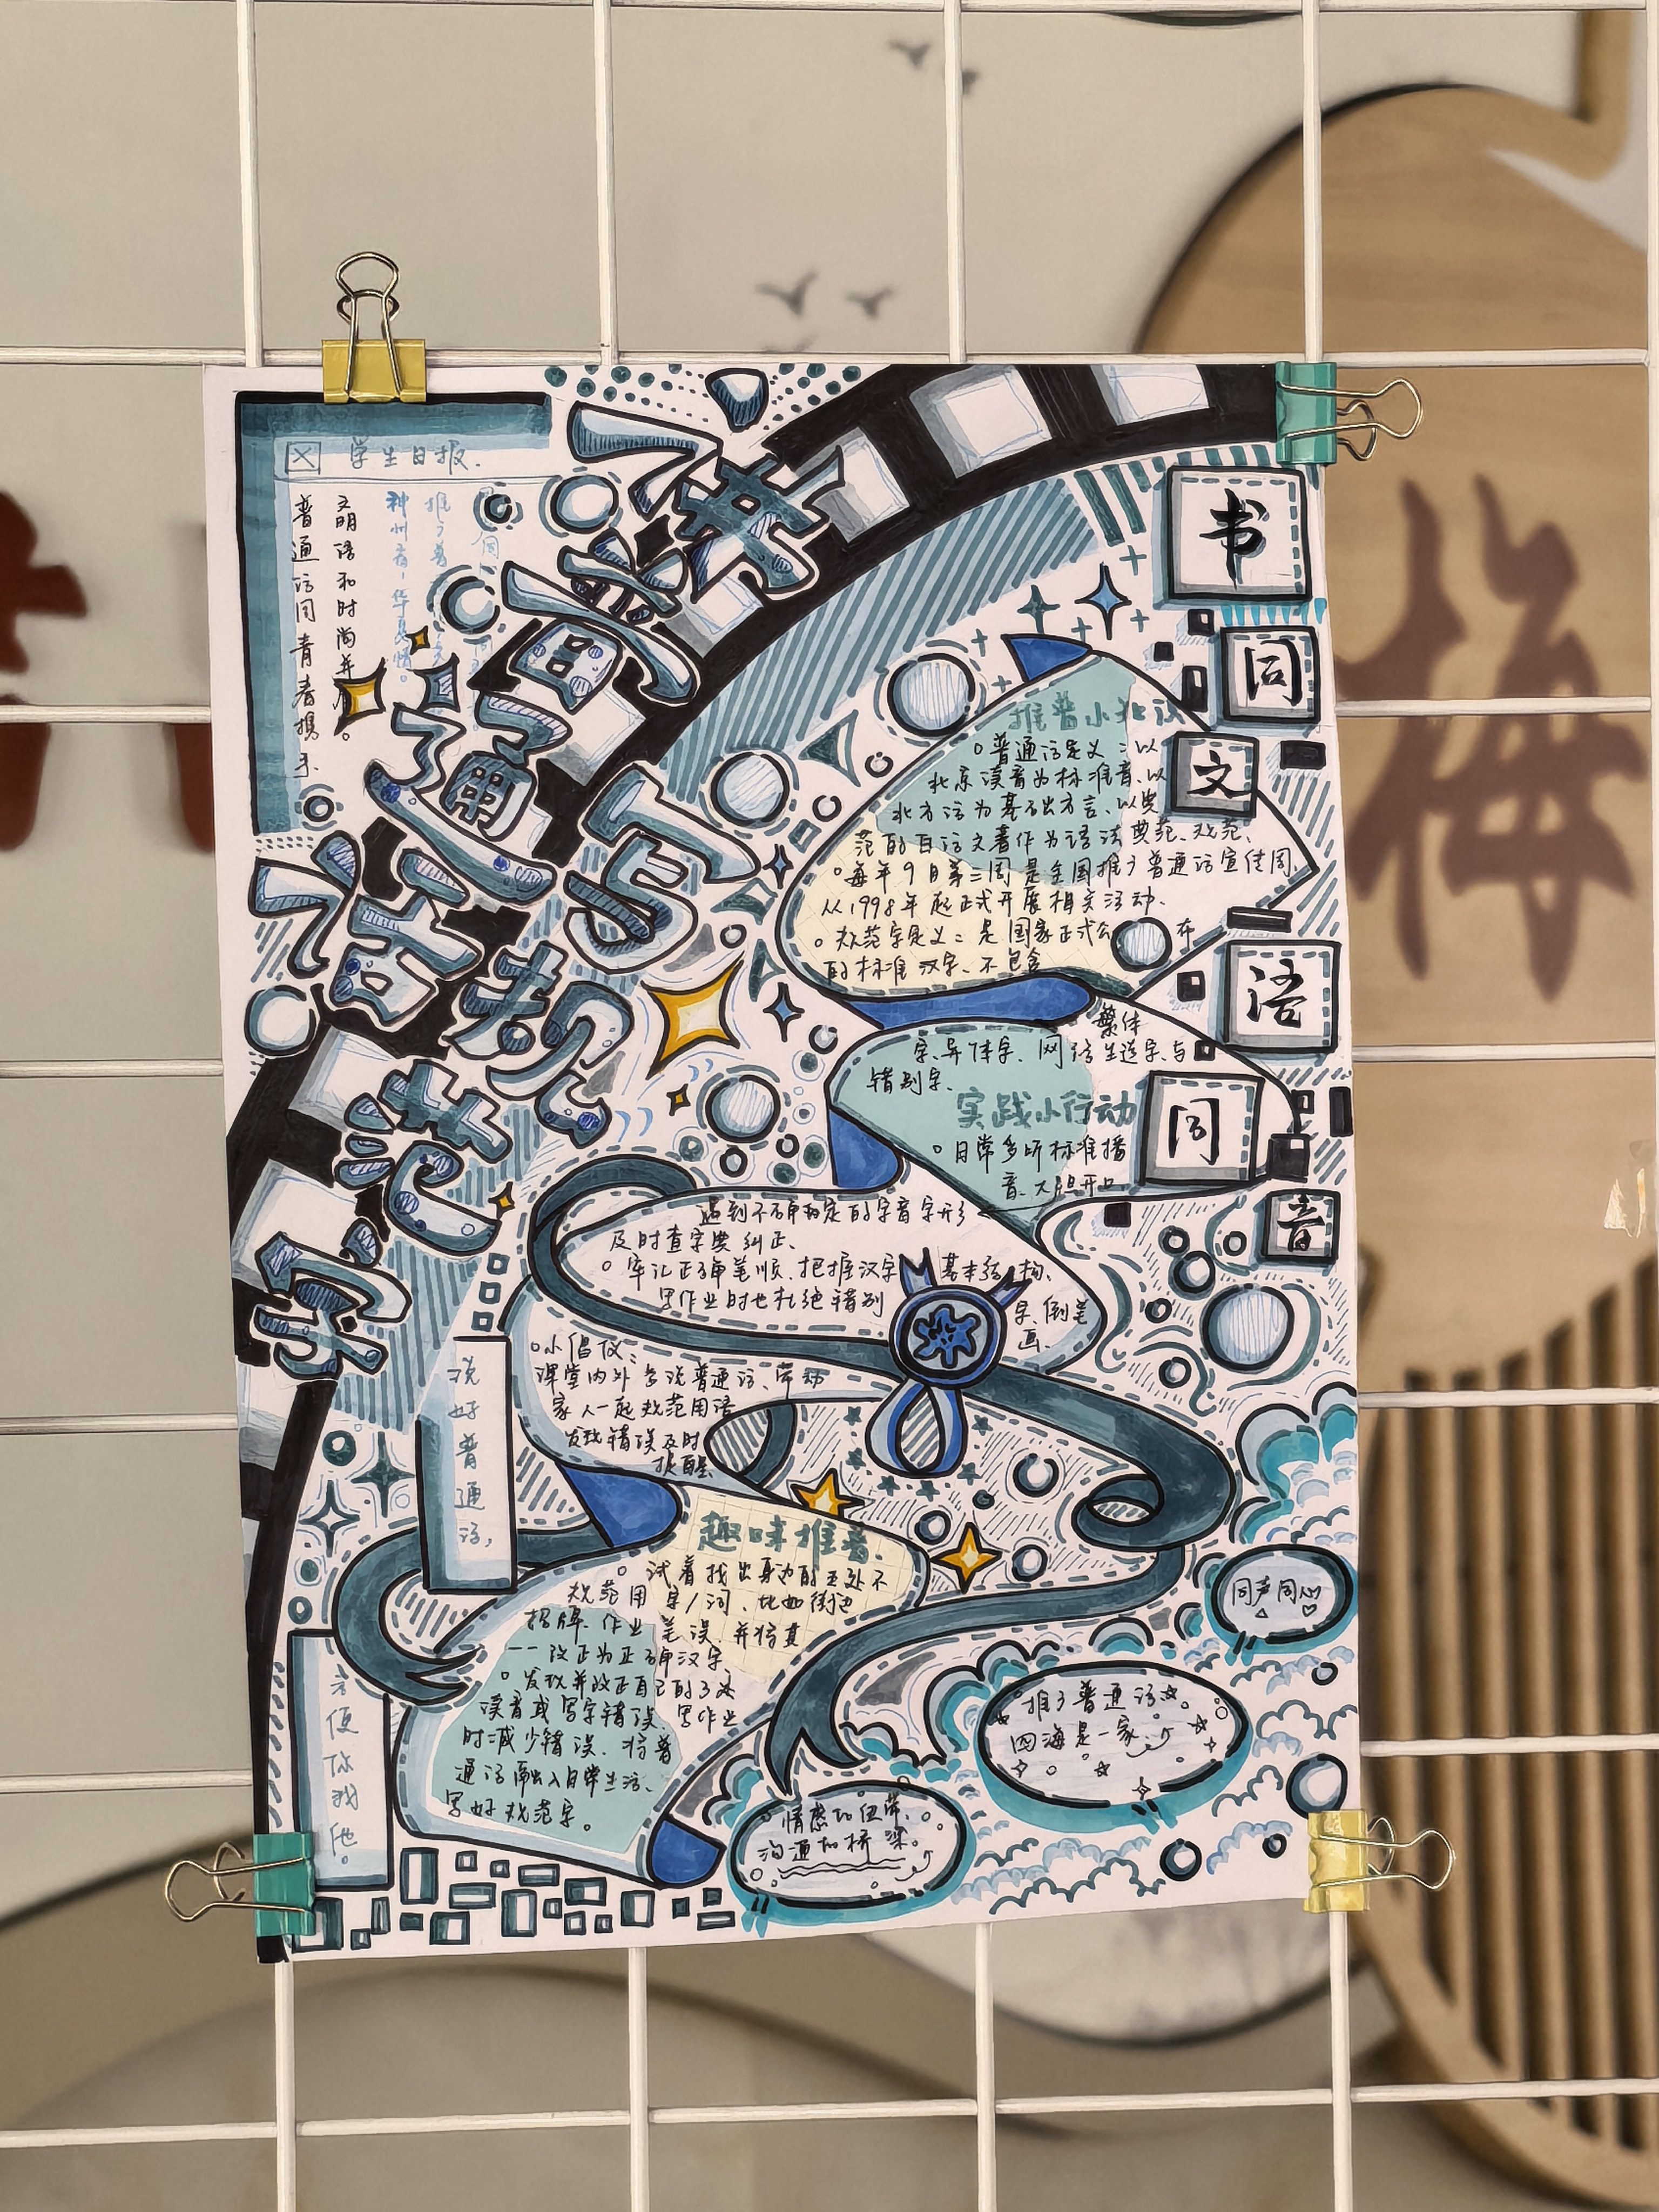 讲普通话写规范字
学生日报.
普通话同青春携手.
文明语和时尚并肩。
神州音,华夏情。
书同文 语同音
推普小知识
普通话定义:以
北京读音为标准音、以
北方话为基础方言、以典
范的白话文著作为语法典范、规范、
每年9月第三周是全国推广普通话宣传周,
从1998年起正式开展相关活动.
规范字定义:是国家正式公布
的标准汉字、不包含
繁体
字、异体字、网络生造字、与
错别字.
实践小行动
日常多听标准播
音、大胆开口
遇到不确定的字音字形
及时查字典纠正、
牢记正确笔顺、把握汉字基本结构、
写作业时也杜绝错别
字、倒笔
画.
小倡仪:
课堂内外多说普通话、带动
家人一起规范用语
发现错误及时
提醒.
说好普通话,
方便你我他。
趣味推普.
试着找出身边的五处不
规范用字/词、比如街边
招牌、作业笔误、并将其
一一改正为正确汉字
发现并改正自己的3处
读音或写字错误、写作业
时减少错误、将普
通话融入日常生活、
写好规范字。
同声同心
推广普通话
四海是一家
情感的纽带、
沟通的桥梁
梅